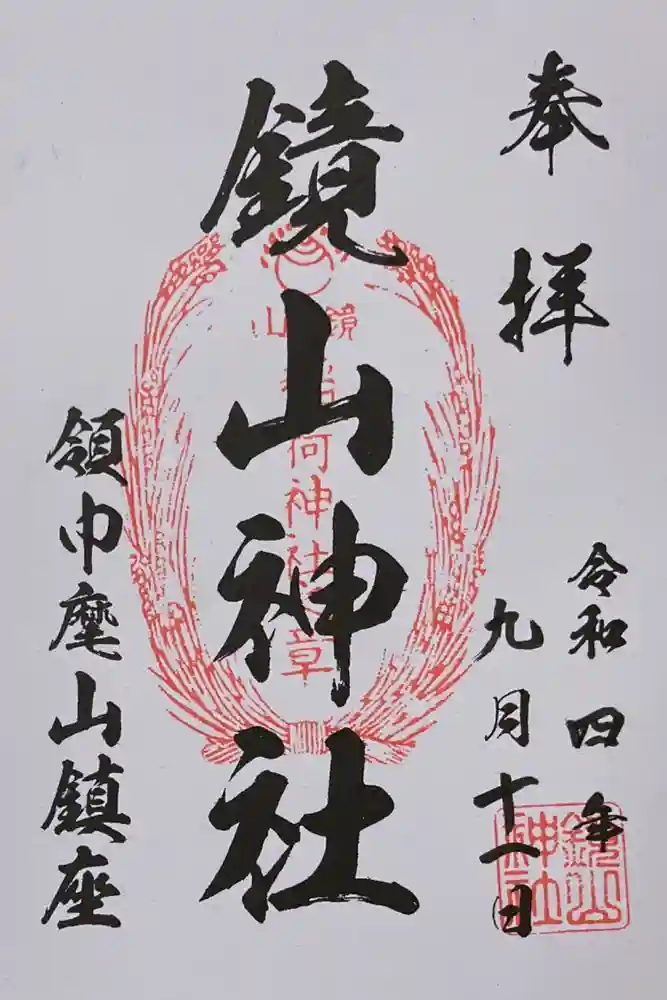 奉拝
令和四年
九月十一日
鏡山神社
鏡山
稲荷神社
章
領巾麾山鎮座
鏡山
神社